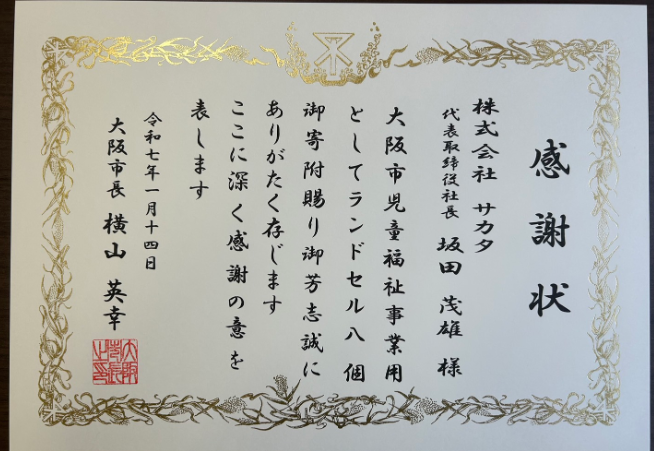 感謝状
株式会社 サカタ
代表取締役社長 坂田 茂雄 様
大阪市児童福祉事業用
としてランドセル八個
御寄附賜り御芳志誠に
ありがたく存じます
ここに深く感謝の意を
表します
令和七年一月十四日
大阪市長 横山 英幸
大阪市長之印